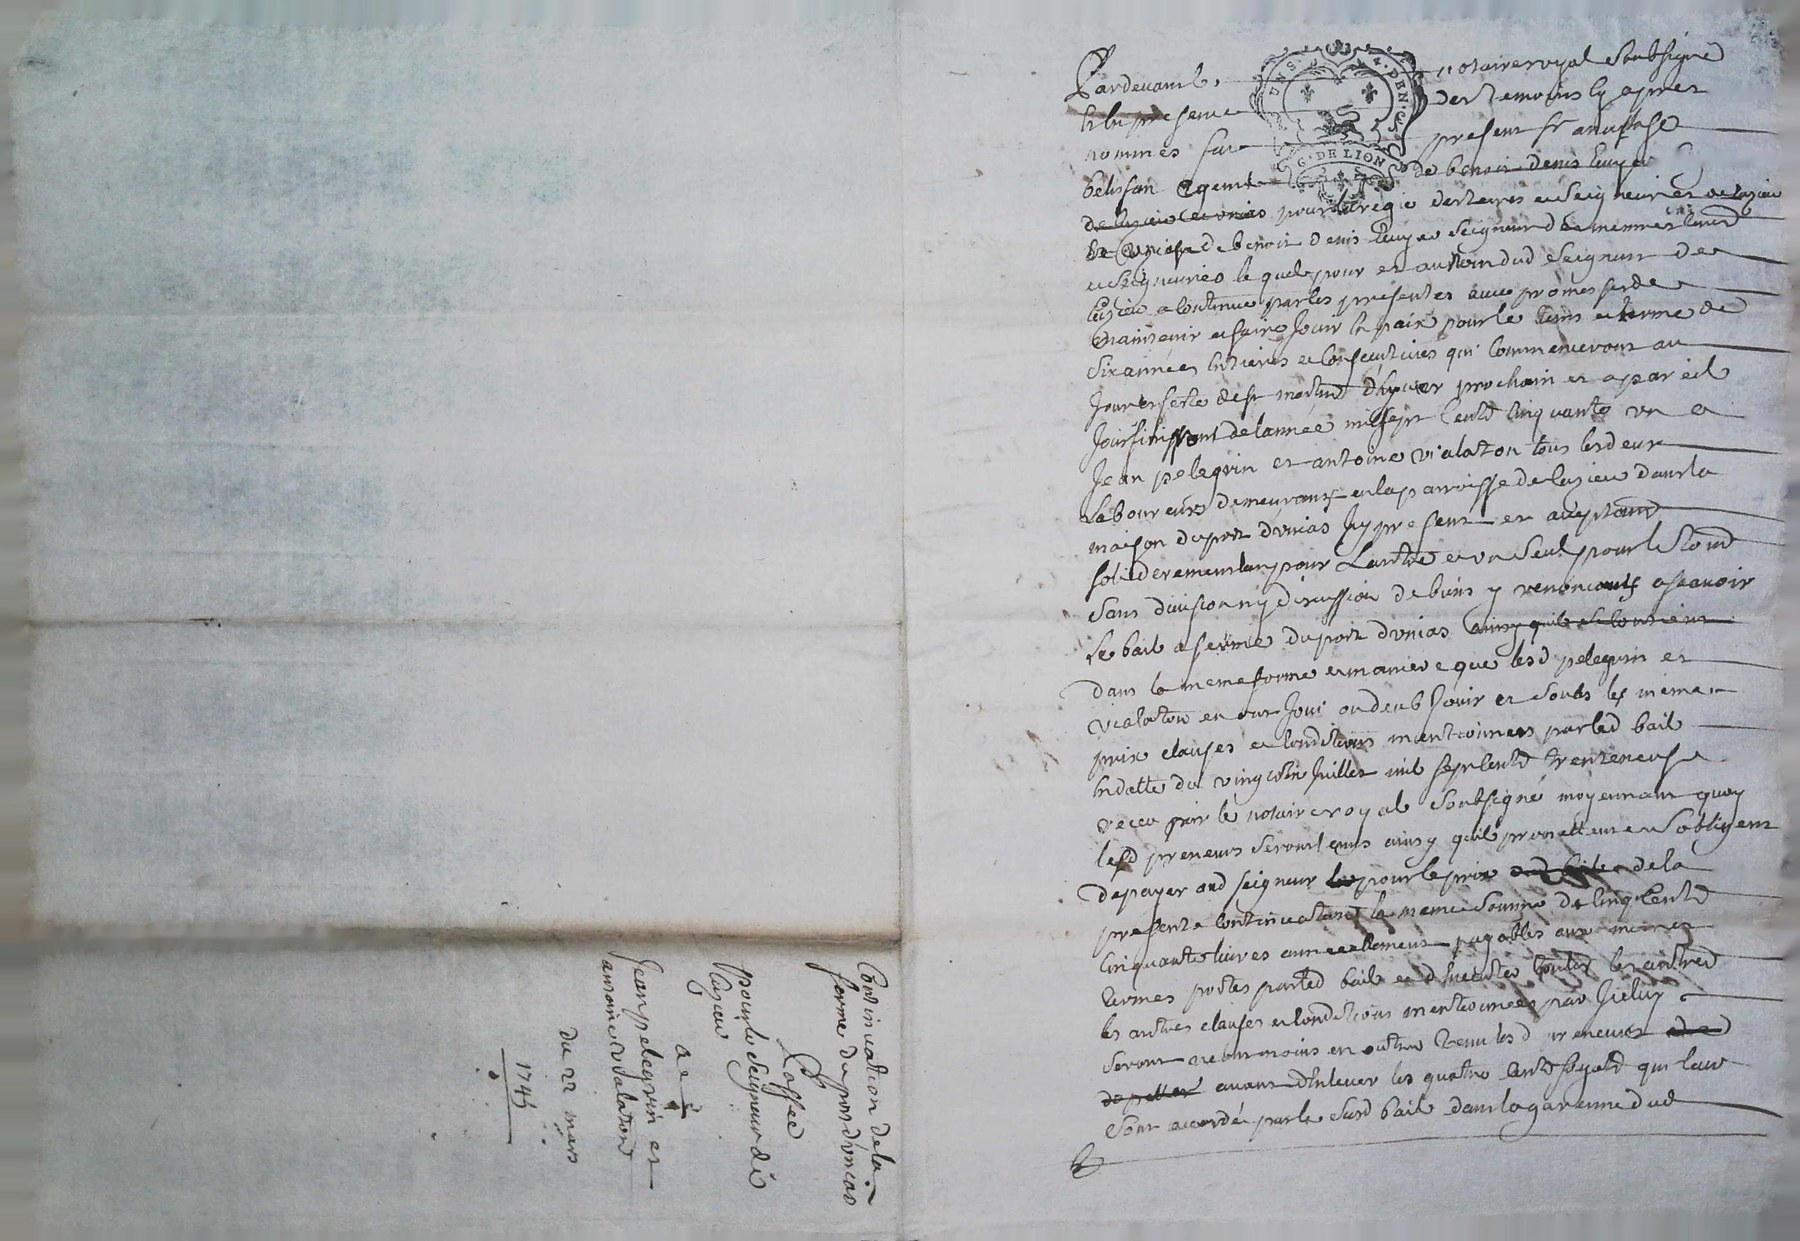 Pardevant notaire royal soubsigné
et en presence des temoins cy apres
nommés fut present sr anastase
belisfan agent de benoit denis Ecuyer
pour la regie des terres et Seigneuries de lazieu
de benoit denis Ecuyer Seigneur desd memes terres
et Seigneuries lequel pour et au nom dud Seigneur de
lazieu a continué par les presentes avec promesse de
maintenir et faire Jouir en paix pour le tems et terme de
six années entieres et consecutives qui commenceront au
Jour et feste de st martin d'hyver prochain et a pareil
Jour finissant de lannée mil sept cents cinquante un a
Jean pelegrin et antoine vialaton tous les deux
Laboureurs demeurants en la parroisse de lazieu dans la
maison du port d'unias Icy present et acceptants
solidairement lun pour Lautre et un seul pour le tout
sans division ny discussion de biens y renoncants ascavoir
Le bail a ferme du port d'unias ainsy quil se contient
dans la meme forme et maniere que lesd pelegrin et
vialaton en ont Joui ou deub Jouir et soubs les memes
prix clauses et conditions mentionnees par led bail
en datte du vingt Juillet mil sept cents trente neuf
receu par le notaire royal soubsigné moyennant quoy
lesd preneurs seront tenus ainsy quils promettent et s'obligent
de payer aud seigneur pour le prix de la
presente continuation la meme somme de cinq cents
cinquante livres annuellement payables aux memes
termes portés par led bail et d'executer toutes
les autres clauses et conditions mentionnees par Iceluy
seront neantmoins en outre tenu lesd preneurs
avant d'Enlever les quatre cents fagots qui leur
sont accordé par le susd bail dans la garenne dud
Continuation de la
ferme du port d'unias
passée
pour le Seigneur de
lazieu
a
Jean pelegrin et
antoine vialaton
du 22 mars
1745
G. DE LION